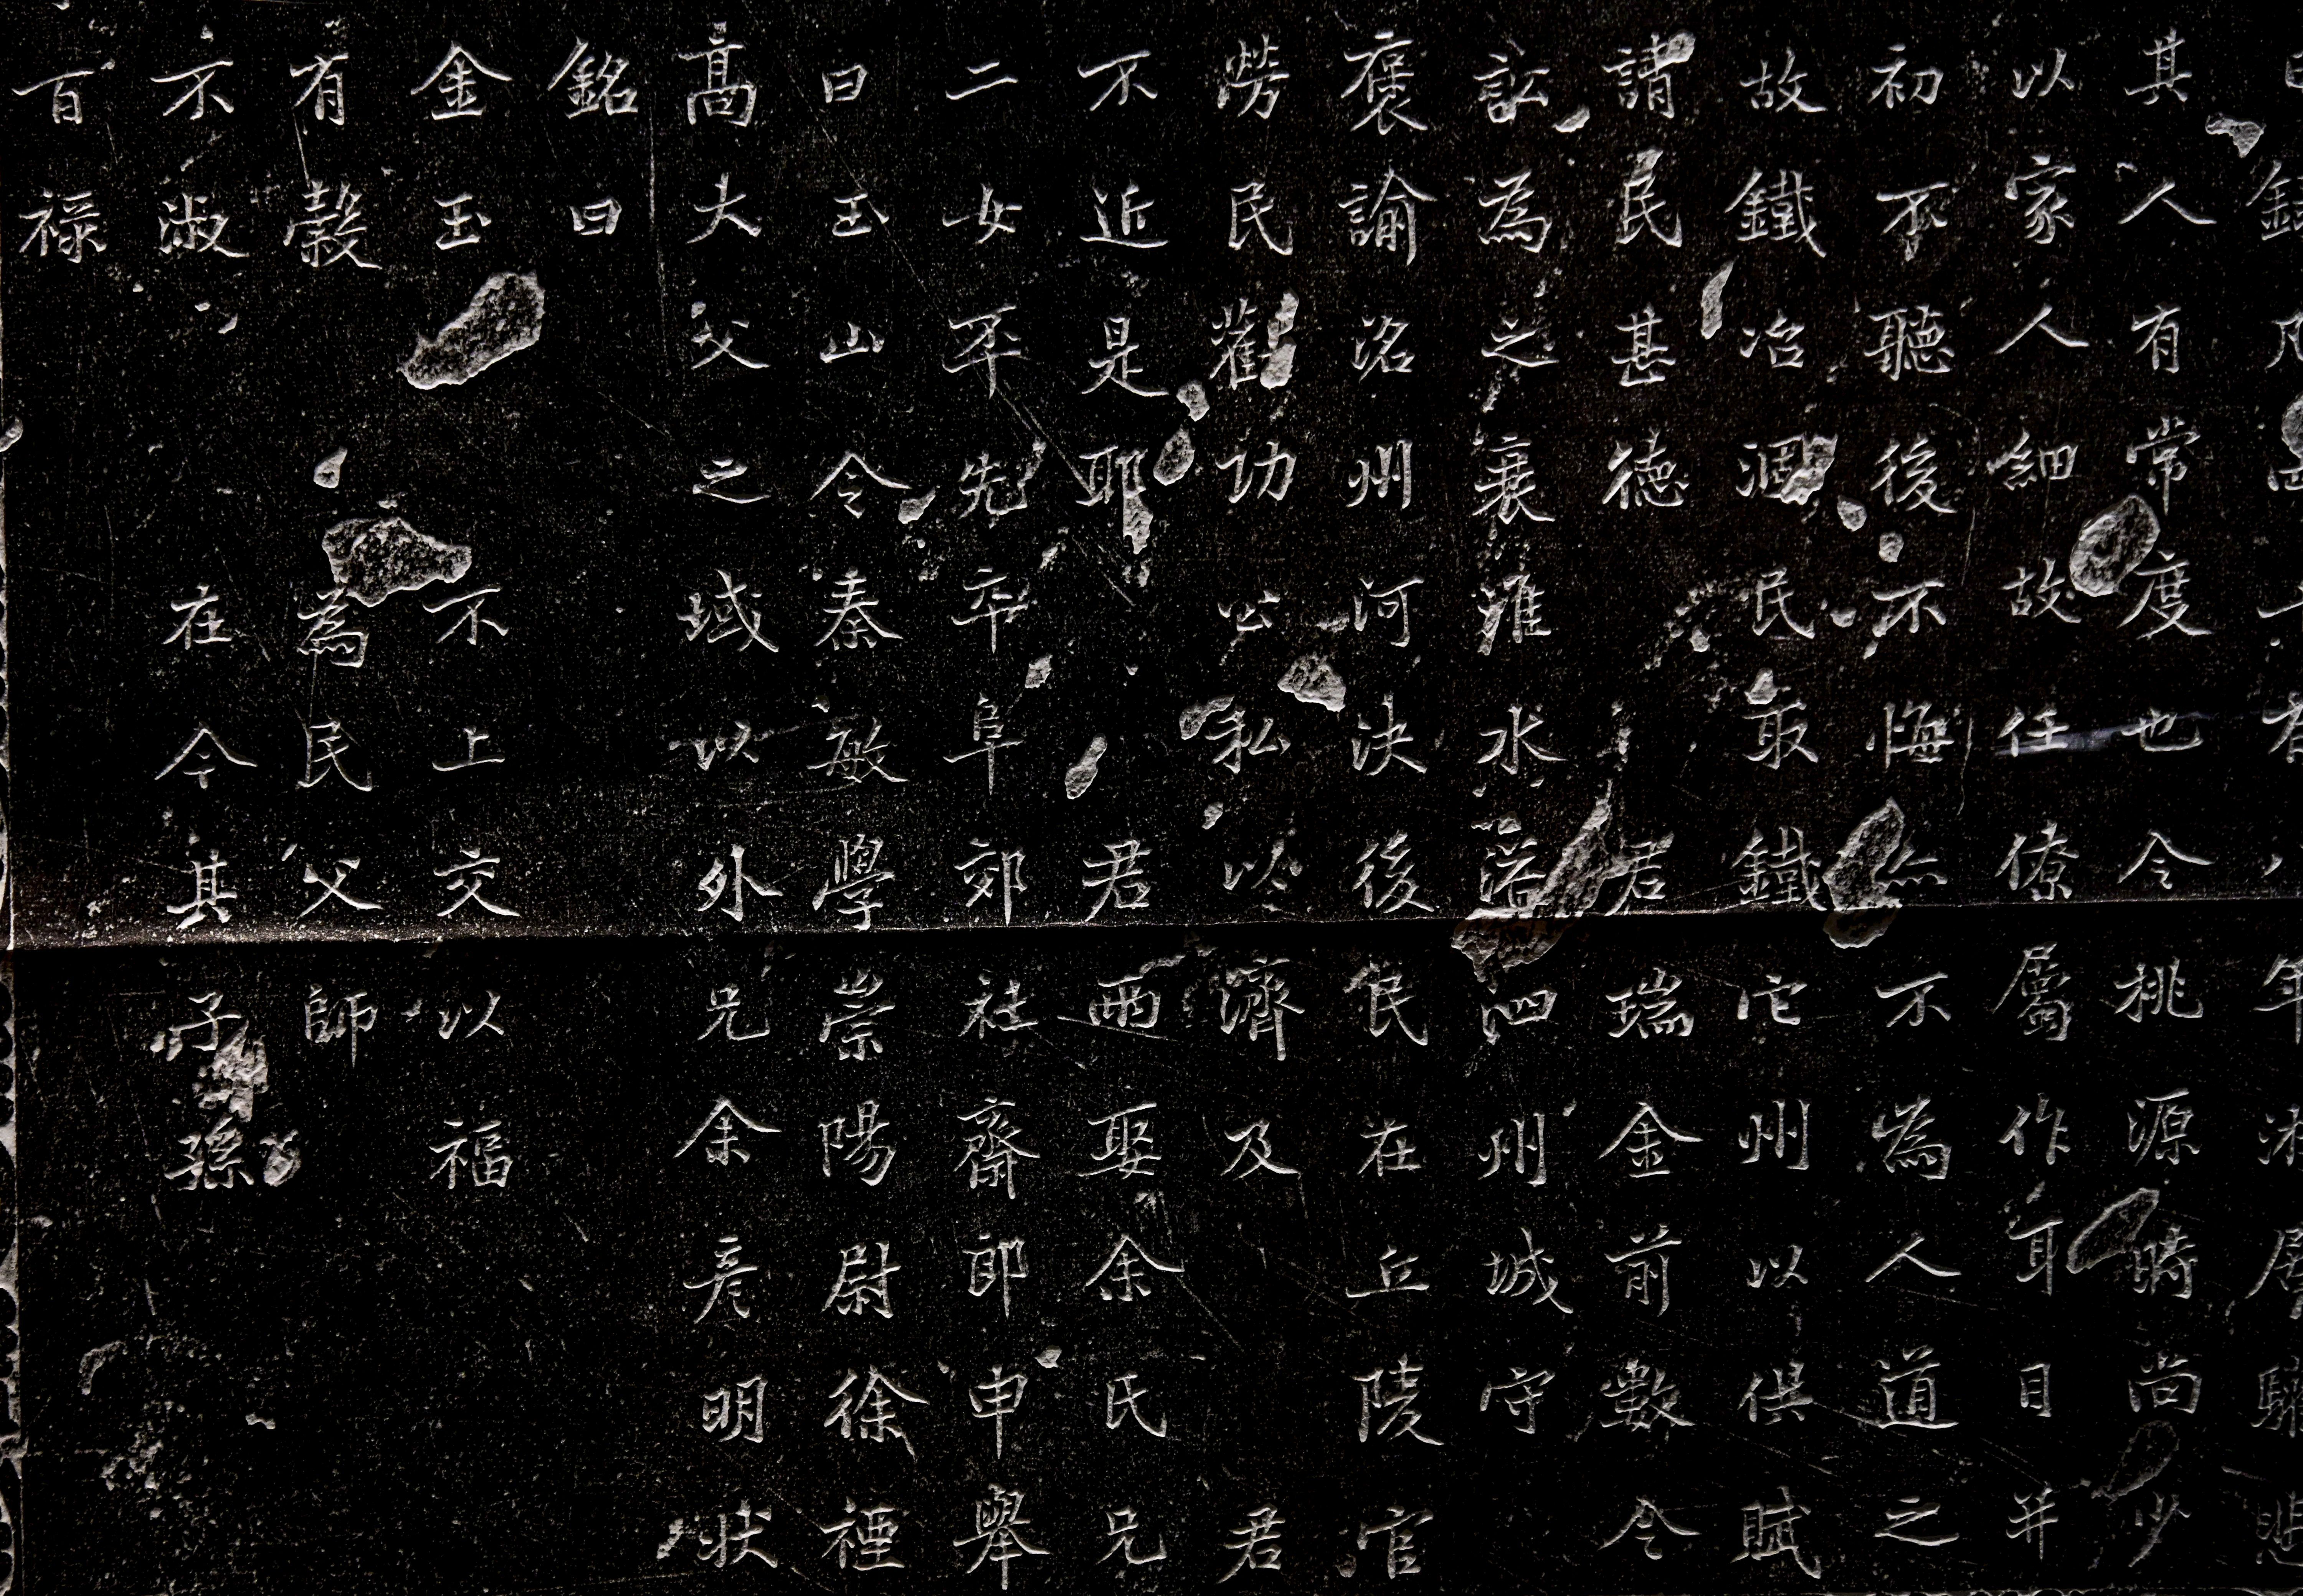 其人有常度也令桃源時尚少
以家人細故任僚屬作耳目并
初不聽後不悔 不為人道之
故鐵冶涸民取鐵它州以供賦
請民甚德 君瑞金前數令
訟為之衰濉水 泗州城守
褒諭洺州河決後民在丘陵官
勞民勸功 公私以濟及 君
不近是耶 君兩娶余氏兄
二女平先卒阜郊社齋郎申舉
曰玉山令秦敏學崇陽尉徐禋
高大父之域以外兄余彥明狀
銘曰
金玉 不上交以福
有穀 為民父師
不淑 在今其子孫
百祿